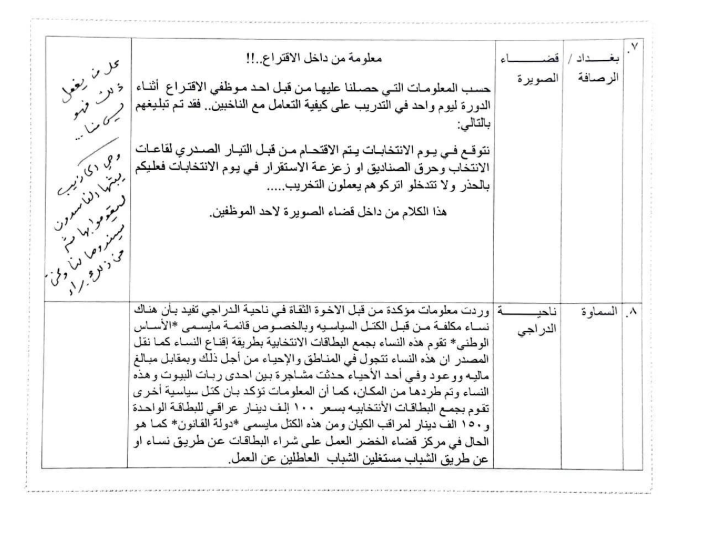 ٧.
بغـــداد / الرصافة
قضـــاء الصويرة
معلومة من داخل الاقتراع..!!
حسب المعلومات التي حصلنا عليها من قبل احد موظفي الاقتراع أثناء
الدورة ليوم واحد في التدريب على كيفية التعامل مع الناخبين.. فقد تم تبليغهم
بالتالي:
نتوقع في يوم الانتخابات يتم الاقتحام من قبل التيار الصدري لقاعات
الانتخاب وحرق الصناديق او زعزعة الاستقرار في يوم الانتخابات فعليكم
بالحذر ولا تتدخلو اتركوهم يعملون التخريب.....
هذا الكلام من داخل قضاء الصويرة لاحد الموظفين.
على من يفعل
ذلك فهو
ليس منا ...
وهي اكاذيب
يبثها الفاسدون
ليقوموا بها ثم
ونحن
من ذلك براء
٨.
السماوة
ناحيـــــة الدراجي
وردت معلومات مؤكدة من قبل الاخوة الثقاة في ناحية الدراجي تفيد بأن هناك
نساء مكلفة من قبل الكتل السياسيه وبالخصوص قائمة مايسمى *الأساس
الوطني* تقوم هذه النساء بجمع البطاقات الانتخابية بطريقة إقناع النساء كما نقل
المصدر ان هذه النساء تتجول في المناطق والإحياء من أجل ذلك وبمقابل مبالغ
ماليه ووعود وفي أحد الأحياء حدثت مشاجرة بين احدى ربات البيوت وهذه
النساء وتم طردها من المكان، كما أن المعلومات تؤكد بان كتل سياسية أخرى
تقوم بجمع البطاقات الأنتخابيه بسعر ١٠٠ إلف دينار عراقي للبطاقة الواحدة
و١٥٠ الف دينار لمراقب الكيان ومن هذه الكتل مايسمى *دولة القانون* كما هو
الحال في مركز قضاء الخضر العمل على شراء البطاقات عن طريق نساء او
عن طريق الشباب مستغلين الشباب العاطلين عن العمل.